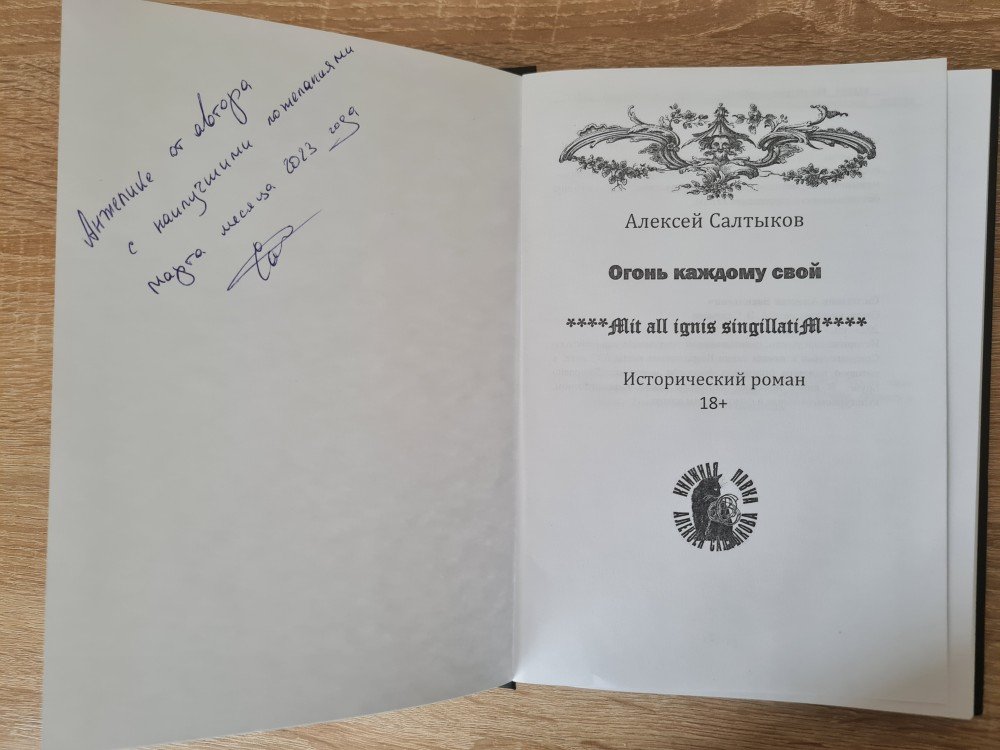 Анжелике от автора
с наилучшими пожеланиями
марта месяца 2023 года
Алексей Салтыков
Огонь каждому свой
****Mit all ignis singillatiM****
Исторический роман
18+
КНИЖНАЯ ЛАВКА
АЛЕКСЕЯ САЛТЫКОВА